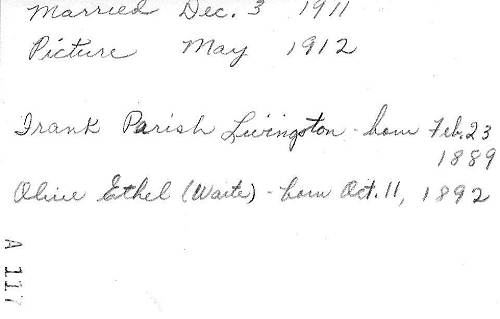 Married Dec. 3 1911
Picture May 1912
Frank Parish Livingston - born Feb. 23
1889
Olive Ethel (Waite) - born Oct. 11, 1892
A 117